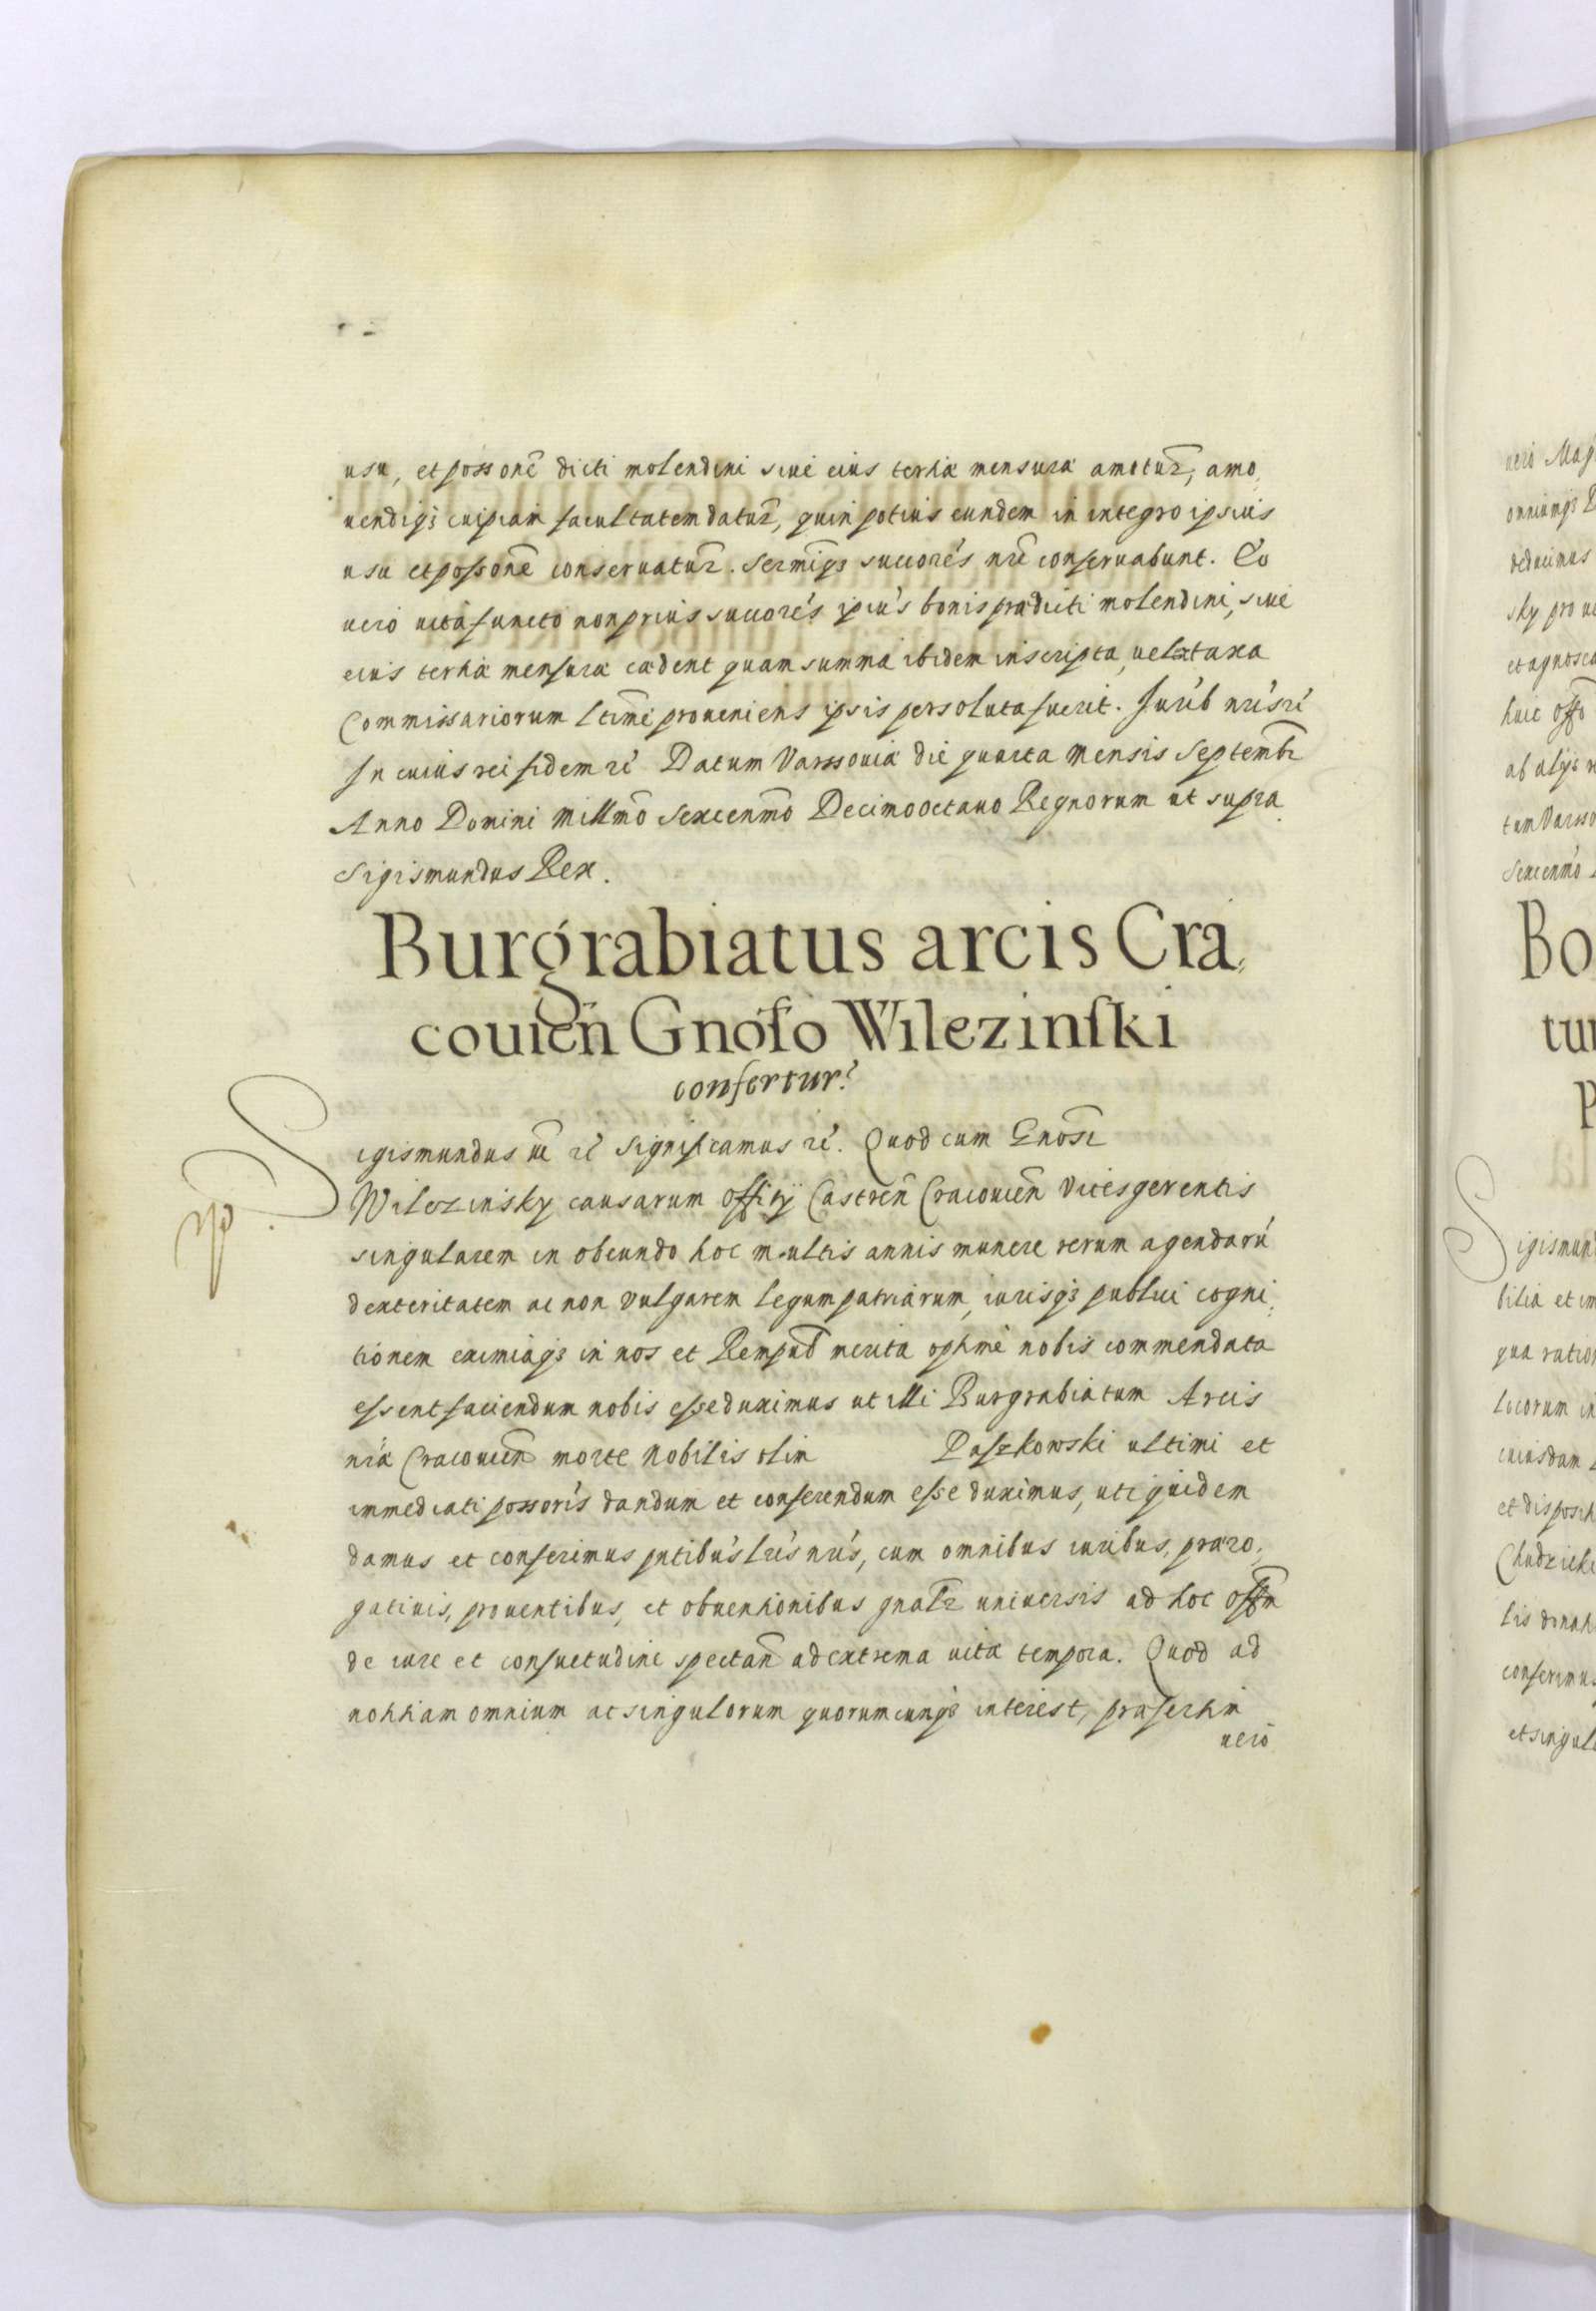 usu, et possonẽ dicti molendini siue eius tertiæ mensuræ amotur̃, amo,
uendiq₃ cuipiam facultatem datur̃, quin potius eundem in integro ipsius
usu et possonẽ conseruatur̃. Sermĩq₃ succorés nr̃i conseruabunt. Eo
uero uitâ functo non prius succorés ipiús bonis prædicti molendini, siue
eius tertiæ mensuræ cædent quam summa ibidem inscripta, uel taxa
Commissariorum ltim̃e proueniens ipsis persoluta fuerit. Jurib nrís rć
In cuius rei fidem rć Datum Varssouiæ die quarta Mensis Septembr̃
Anno Domini Millm̃o Sexcenm̃o Decimooctauo Regnorum ut supra.
Sigismundus Rex.
Burgrabiatus arcis Cra,
couien̄ Gnóso Wilezinski
confertur.
Sigismundus ut̃ rć Significamus rć. Quod cum Gnosĩ
Wilczinsky causarum officÿ Castren̄ Cracouien̄ Vicesgerentis
singularem in obeundo hoc multis annis munere rerum agendarū
dexteritatem ac non vulgarem legum patriarum, iurisq₃ publici cogni,
tionem eximiaq₃ in nos et Rempub̄ merita optimè nobis commendata
essent faciendum nobis esse duximus ut illi Burgrabiatum Arcis
nr̃æ Cracouien̄ morte Nobilis olim Paszkowski ultimi et
immediati possorís dandum et conferendum esse duximus, uti quidem
damus et conferimus pn̄tibús lrís nrís, cum omnibus iuribus, præro,
gatiuis, prouentibus, et obuentionibus gnalr̃ uniuersis ad hoc off̃m
de iure et consuetudine spectan̄ ad extrema uitæ tempora. Quod ad
notitiam omnium ac singulorum quorumcunq₃ interest, præsertim
uero
uero Mag
omniumq₃
deducimus
sky pro
et agnosca
huic offo
ab alÿs
tum Varsso
Sexcenm̃o
Bo
tur
P
Sigismun
bilia et im
qua ratio
locorum in
cuiusdam
et disposit
Chudzicki
lis donati
conferimus
et singul